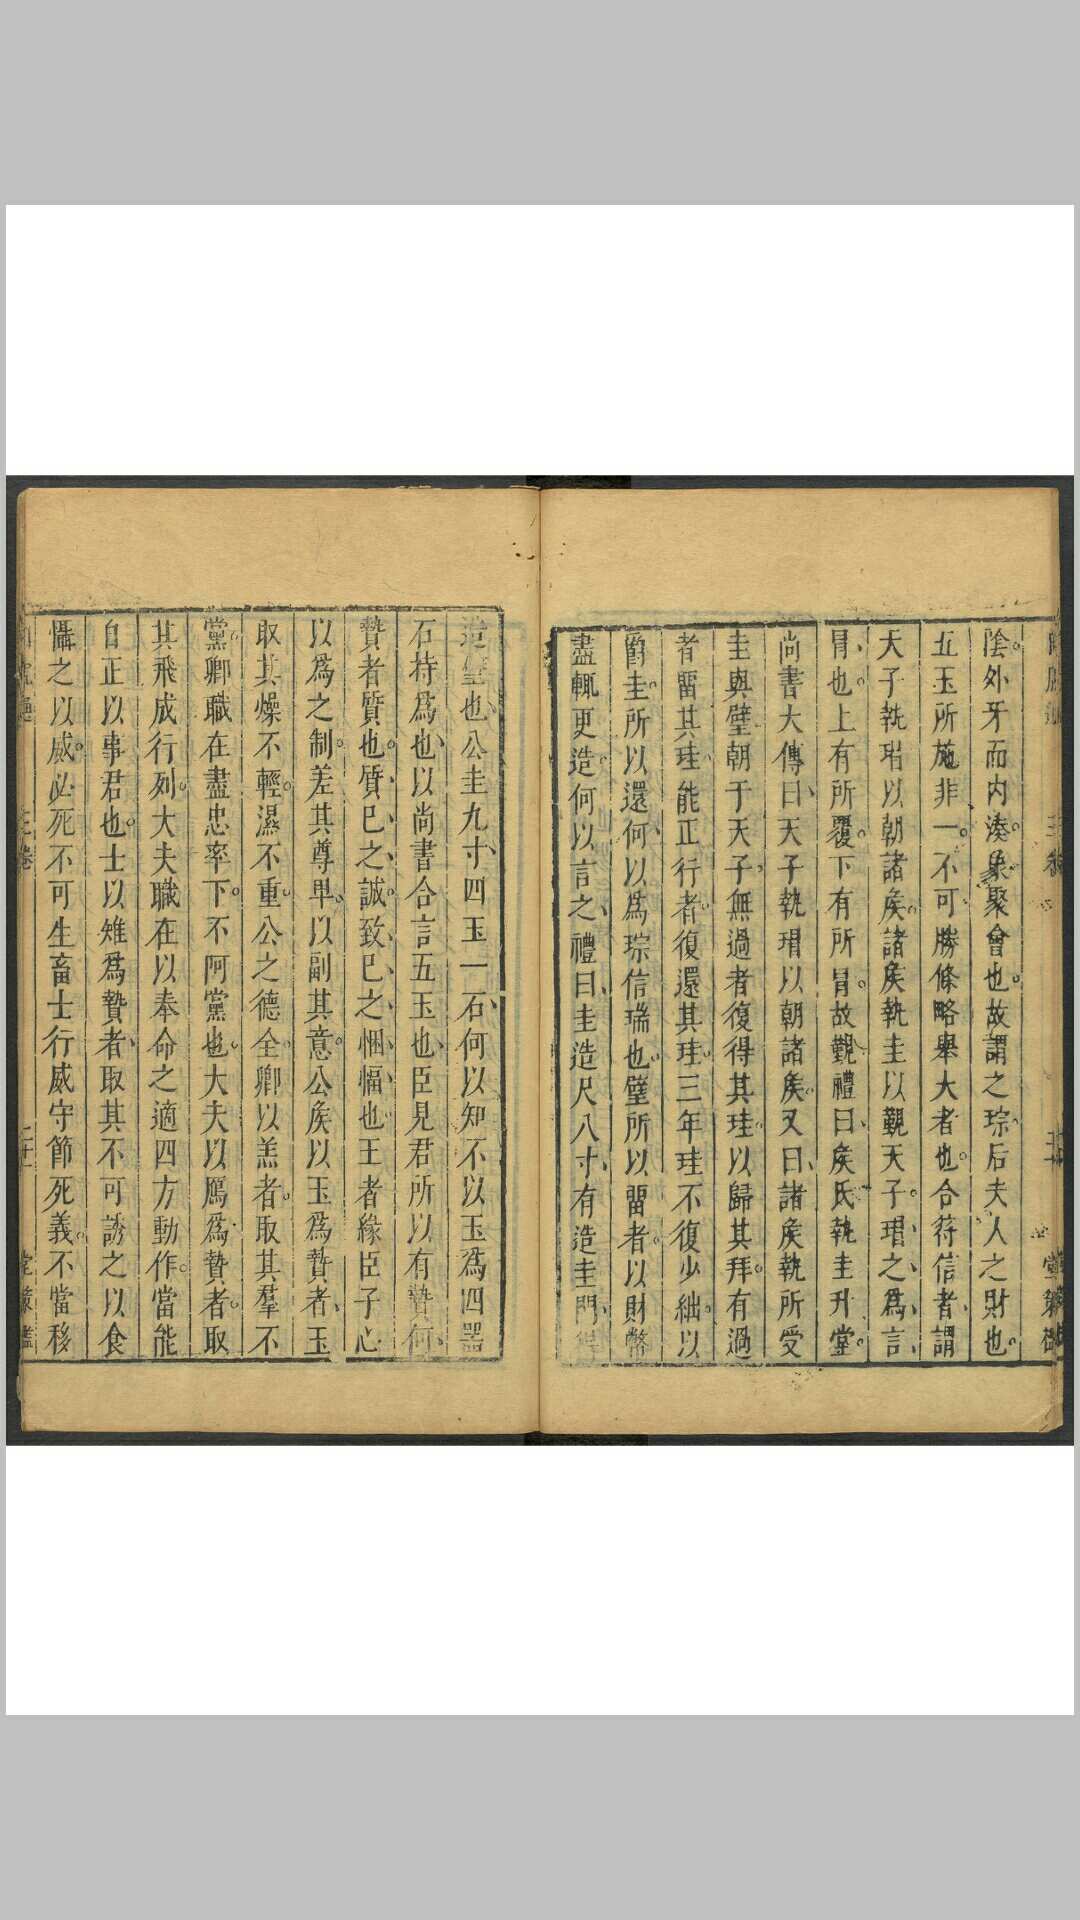 陰外牙而內湊象聚會也故謂之琮后夫人之財也
五玉所施非一不可勝條略舉大者也合符信者謂
天子執瑁以朝諸矦諸矦執圭以覲天子瑁之爲言
冒也上有所覆下有所冒故覲禮曰矦氏執圭升堂
尚書大傳曰天子執瑁以朝諸矦又曰諸矦執所受
圭與璧朝于天子無過者復得其珪以歸其拜有過
者畱其珪能正行者復還其珪三年珪不復少絀以
爵圭所以還何以爲琮信瑞也璧所以畱者以財幣
盡輒更造何以言之禮曰圭造尺八寸有造圭門得
造璧也公圭九寸四玉一石何以知不以玉爲四器
石持爲也以尚書合言五玉也臣見君所以有贄何
贄者質也質已之誠致已之悃愊也王者緣臣子心
以爲之制差其尊卑以副其意公矦以玉爲贄者玉
取其燥不輕濕不重公之德全卿以羔者取其羣不
黨卿職在盡忠率下不阿黨也大夫以鴈爲贄者取
其飛成行列大夫職在以奉命之適四方動作當能
自正以事君也士以雉爲贄者取其不可誘之以食
懾之以威必死不可生畜士行威守節死義不當移